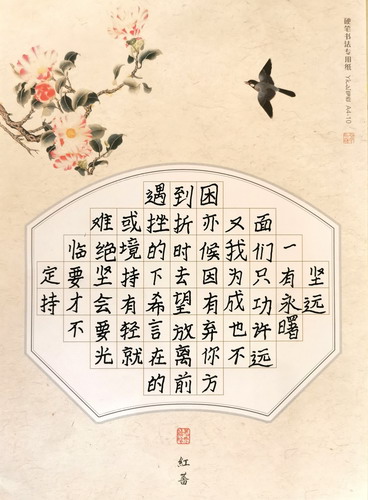 遇到困
难或挫折亦又面
临绝境的时候我们一
定要坚持下去因为只有坚
持才会有希望有成功永远
不要轻言放弃也许曙
光就在离你不远
的前方
硬笔书法专用纸 A4-10
紅